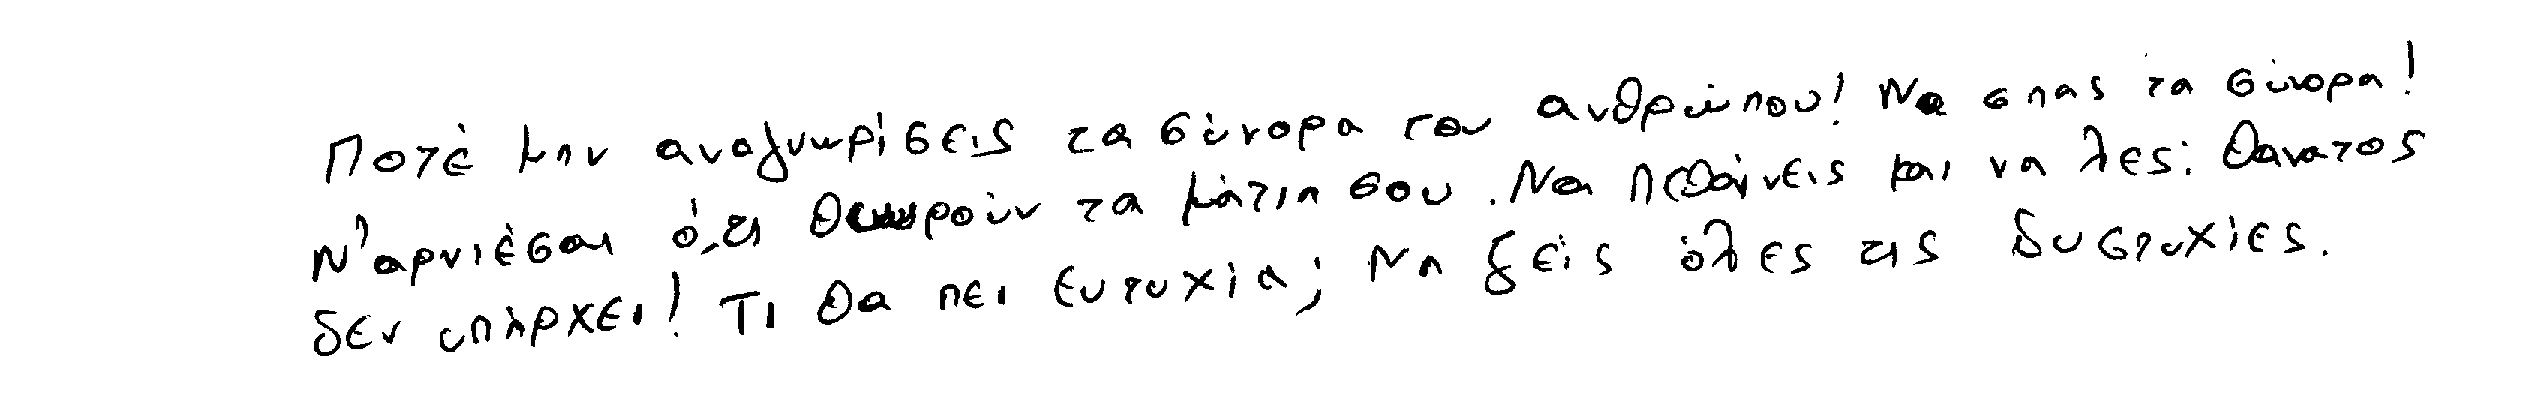 Ποτέ μην αναγνωρίσεις τα σύνορα του ανθρώπου! Να σπας τα σύνορα!
Ν' αρνιέσαι ό,τι θωρούν τα μάτια σου. Να πεθαίνεις και να λες: Θάνατος
δεν υπάρχει! Τι θα πει ευτυχία; Να ζεις όλες τις δυστυχίες.